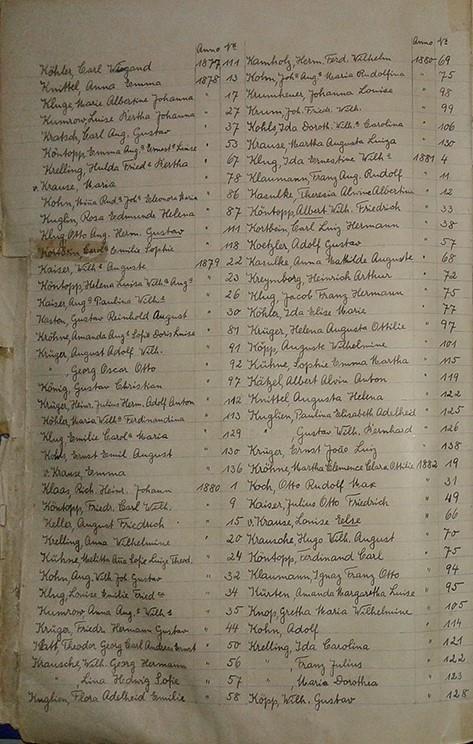 Anno Nº
Köhler, Carl Wiegand 1877 111
Knittel, Anna Emma 1878 13
Kluge, Marie Albertine Johanna " 17
Kumrow, Luise Bertha Johanna " 27
Kratsch, Carl Aug. Gustav " 37
Köntopp, Emma Augᵉ Ernestᵉ Luise " 53
Krelling, Hulda Friedᵉ Bertha " 67
v. Krause, Maria " 78
Kohn, Mina Rudᵃ Johᵃ Eleonora Maria " 86
Kuglin, Rosa Edmunde Helena " 87
Klug, Otto Aug. Herm. Gustav " 111
Korbbein, Carolᵉ Emilie Sophie " 118
Kaiser, Wilhᵉ Auguste 1879 22
Köntopp, Helena Luisa Wilhᵉ Augᵃ " 23
Kaiser, Augᵃ Paulina Wilhᵉ " 26
Kaston, Gustav Reinhold August " 30
Kröhne, Amanda Augᵃ Sofie Doris Luise " 81
Krüger, August Adolf Wilh. " 91
" , Georg Oscar Otto " 92
König, Gustav Christian " 97
Krüger, Heinr. Julius Herm. Adolf Anton " 112
Köhler, Maria Wilhᵃ Ferdinandina " 113
Klug, Emilie Carolᵃ Maria " 129
Kohls, Ernst Emil August " 130
v. Krause, Emma " 136
Klaas, Rich. Heinr. Johann 1880 1
Köntopp, Friedr. Carl Wilh. " 9
Keller, August Friedrich " 15
Krelling, Anna Wilhelmine " 20
Kühne, Melitta Ana Sofie Luise Theod. " 24
Kohn, Aug. Wilh. Joh. Gustav " 32
Klug, Louise Emilie Friedᵉ " 34
Kumrow, Anna Augᵃ Wilhᵉ " 35
Krüger, Friedr. Hermann Gustav " 44
Kath, Theodor Georg Carl Andreas Ernst " 50
Krausche, Wilh. Georg Hermann " 56
" , Lina Hedwig Sofie " 57
Kuglien, Flora Adelheid Emilie " 58
Anno Nº
Kamholz, Herm. Ferd. Wilhelm 1880 69
Kohn, Johᵃ Augᵃ Maria Rudolfina " 75
Krumheuer, Johanna Louise " 98
Krum, Joh. Friedr. Wilh. " 99
Kohls, Ida Doroth. Wilhᵃ Carolina " 106
Krause, Martha Augusta Luiza " 130
Klug, Ida Ernestine Wilhᵉ 1881 4
Klaumann, Franz Aug. Rudolf " 11
Kasulke, Theresia Alwine Albertina " 12
Köntopp, Albert Wilh. Friedrich " 33
Korbbein, Carl Luiz Hermann " 38
Koetzler, Adolf Gustav " 57
Kasulke, Anna Mathilde Auguste " 68
Kreymborg, Heinrich Arthur " 72
Klug, Jacob Franz Hermann " 75
Köhler, Ida Elise Marie " 77
Krüger, Helena Augusta Ottilie " 97
Köpp, Auguste Wilhelmine " 101
Kühne, Sophie Emma Martha " 115
Kätzel, Albert Alvin Anton " 119
Knittel, Augusta Helena " 122
Kuglien, Paulina Elisabeth Adelheid " 125
" , Gustav Wilh. Bernhard " 126
Krüger, Ernst João Luiz " 138
Kröhne, Martha Clemence Clara Ottilie 1882 19
Koch, Otto Rudolf Max " 31
Kaiser, Julius Otto Friedrich " 49
v. Krause, Louise Else " 66
Krausche, Hugo Wilh. August " 70
Köntopp, Ferdinand Carl " 75
Klaumann, Ignaz Franz Otto " 94
Kürten, Amanda Margaretha Luise " 95
Knop, Gretha Maria Wilhelmine " 105
Kohn, Adolf " 114
Krelling, Ida Carolina " 121
" , Franz Julius " 122
" , Maria Dorothea " 123
Köpp, Wilh. Gustav " 128